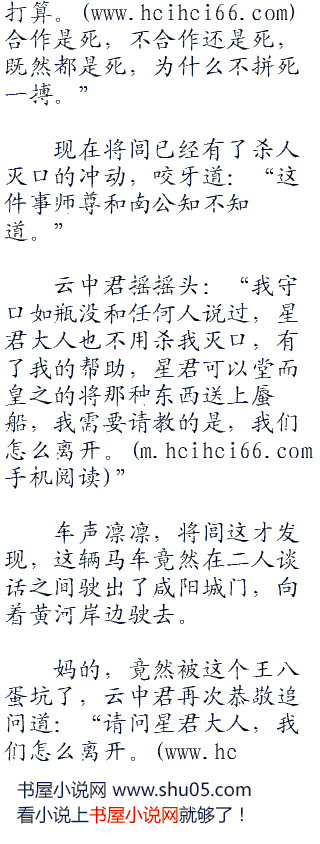 打算。(www.hcihci66.com)
合作是死，不合作还是死，
既然都是死，为什么不拼死
一搏。”
现在将闾已经有了杀人
灭口的冲动，咬牙道：“这
件事师尊和南公知不知
道。”
云中君摇摇头：“我守
口如瓶没和任何人说过，星
君大人也不用杀我灭口，有
了我的帮助，星君可以堂而
皇之的将那种东西送上蜃
船，我需要请教的是，我们
怎么离开。(m.hcihci66.com
手机阅读)”
车声凛凛，将闾这才发
现，这辆马车竟然在二人谈
话之间驶出了咸阳城门，向
着黄河岸边驶去。
妈的，竟然被这个王八
蛋坑了，云中君再次恭敬追
问道：“请问星君大人，我
们怎么离开。(www.hc
书屋小说网 www.shu05.com
看小说上书屋小说网就够了！